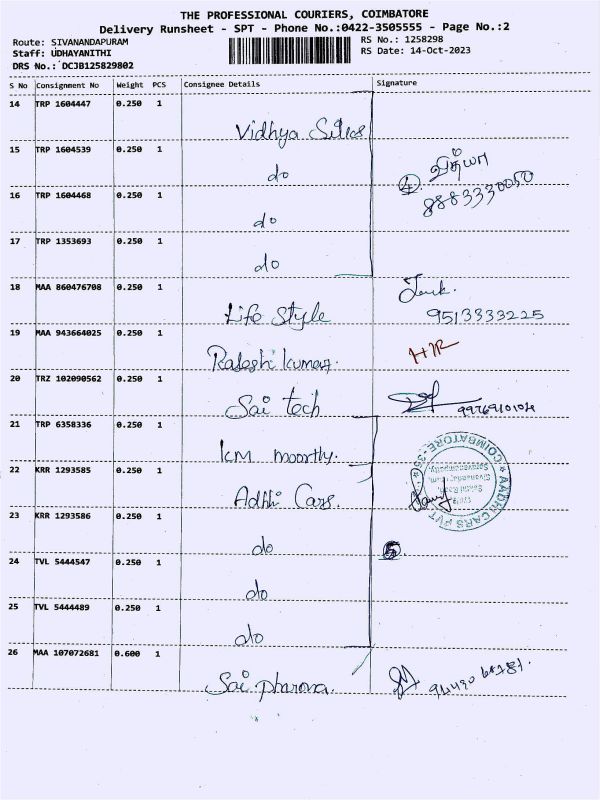 THE PROFESSIONAL COURIERS, COIMBATORE
Delivery Runsheet - SPT - Phone No.:0422-3505555 - Page No.:2
Route: SIVANANDAPURAM
RS No.: 1258298
Staff: UDHAYANITHI
RS Date: 14-Oct-2023
DRS No.: DCJB125829802
S No Consignment No Weight PCS Consignee Details Signature
14 TRP 1604447 0.250 1
Vidhya Silks
15 TRP 1604539 0.250 1
do
வித்யா
4 8883330050
16 TRP 1604468 0.250 1
do
17 TRP 1353693 0.250 1
do
18 MAA 860476708 0.250 1
Life Style
9513333225
19 MAA 943664025 0.250 1
Rajesh kumar. HR
20 TRZ 102090562 0.250 1
Sai tech 9976910104
21 TRP 6358336 0.250 1
km moorthy.
22 KRR 1293585 0.250 1
Adhi Cars.
AADHI CARS PVT
COIMBATORE-35
Sivanandapuram,
Saravanampatty,
23 KRR 1293586 0.250 1
do 5
24 TVL 5444547 0.250 1
do
25 TVL 5444489 0.250 1
do
26 MAA 107072681 0.600 1
Sai pharma.